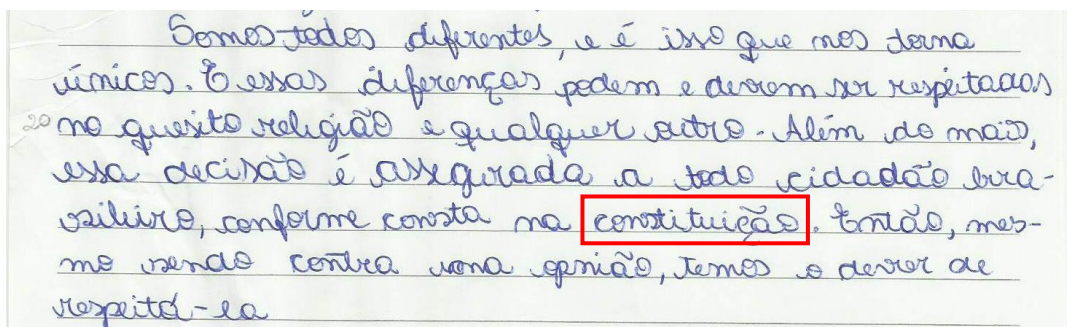 Somos todos diferentes, e é isso que nos torna
únicos. E essas diferenças podem e devem ser respeitadas
20 no quesito religião e qualquer outro. Além do mais,
essa decisão é assegurada a todo cidadão bra-
sileiro, conforme consta na constituição. Então, mes-
mo sendo contra uma opnião, temos o dever de
respeitá-la